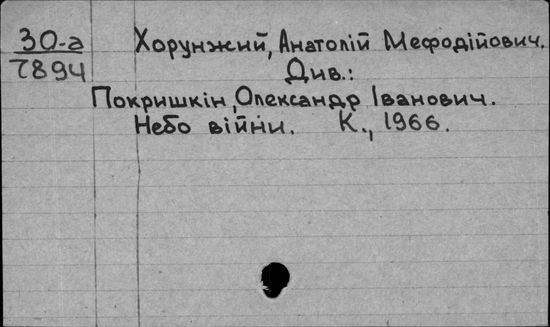 30-а Хорунжий, Анатолій Мефодійович.
7894 Див.:
Покришкін, Олександр Іванович.
Небо війни. К., 1966.